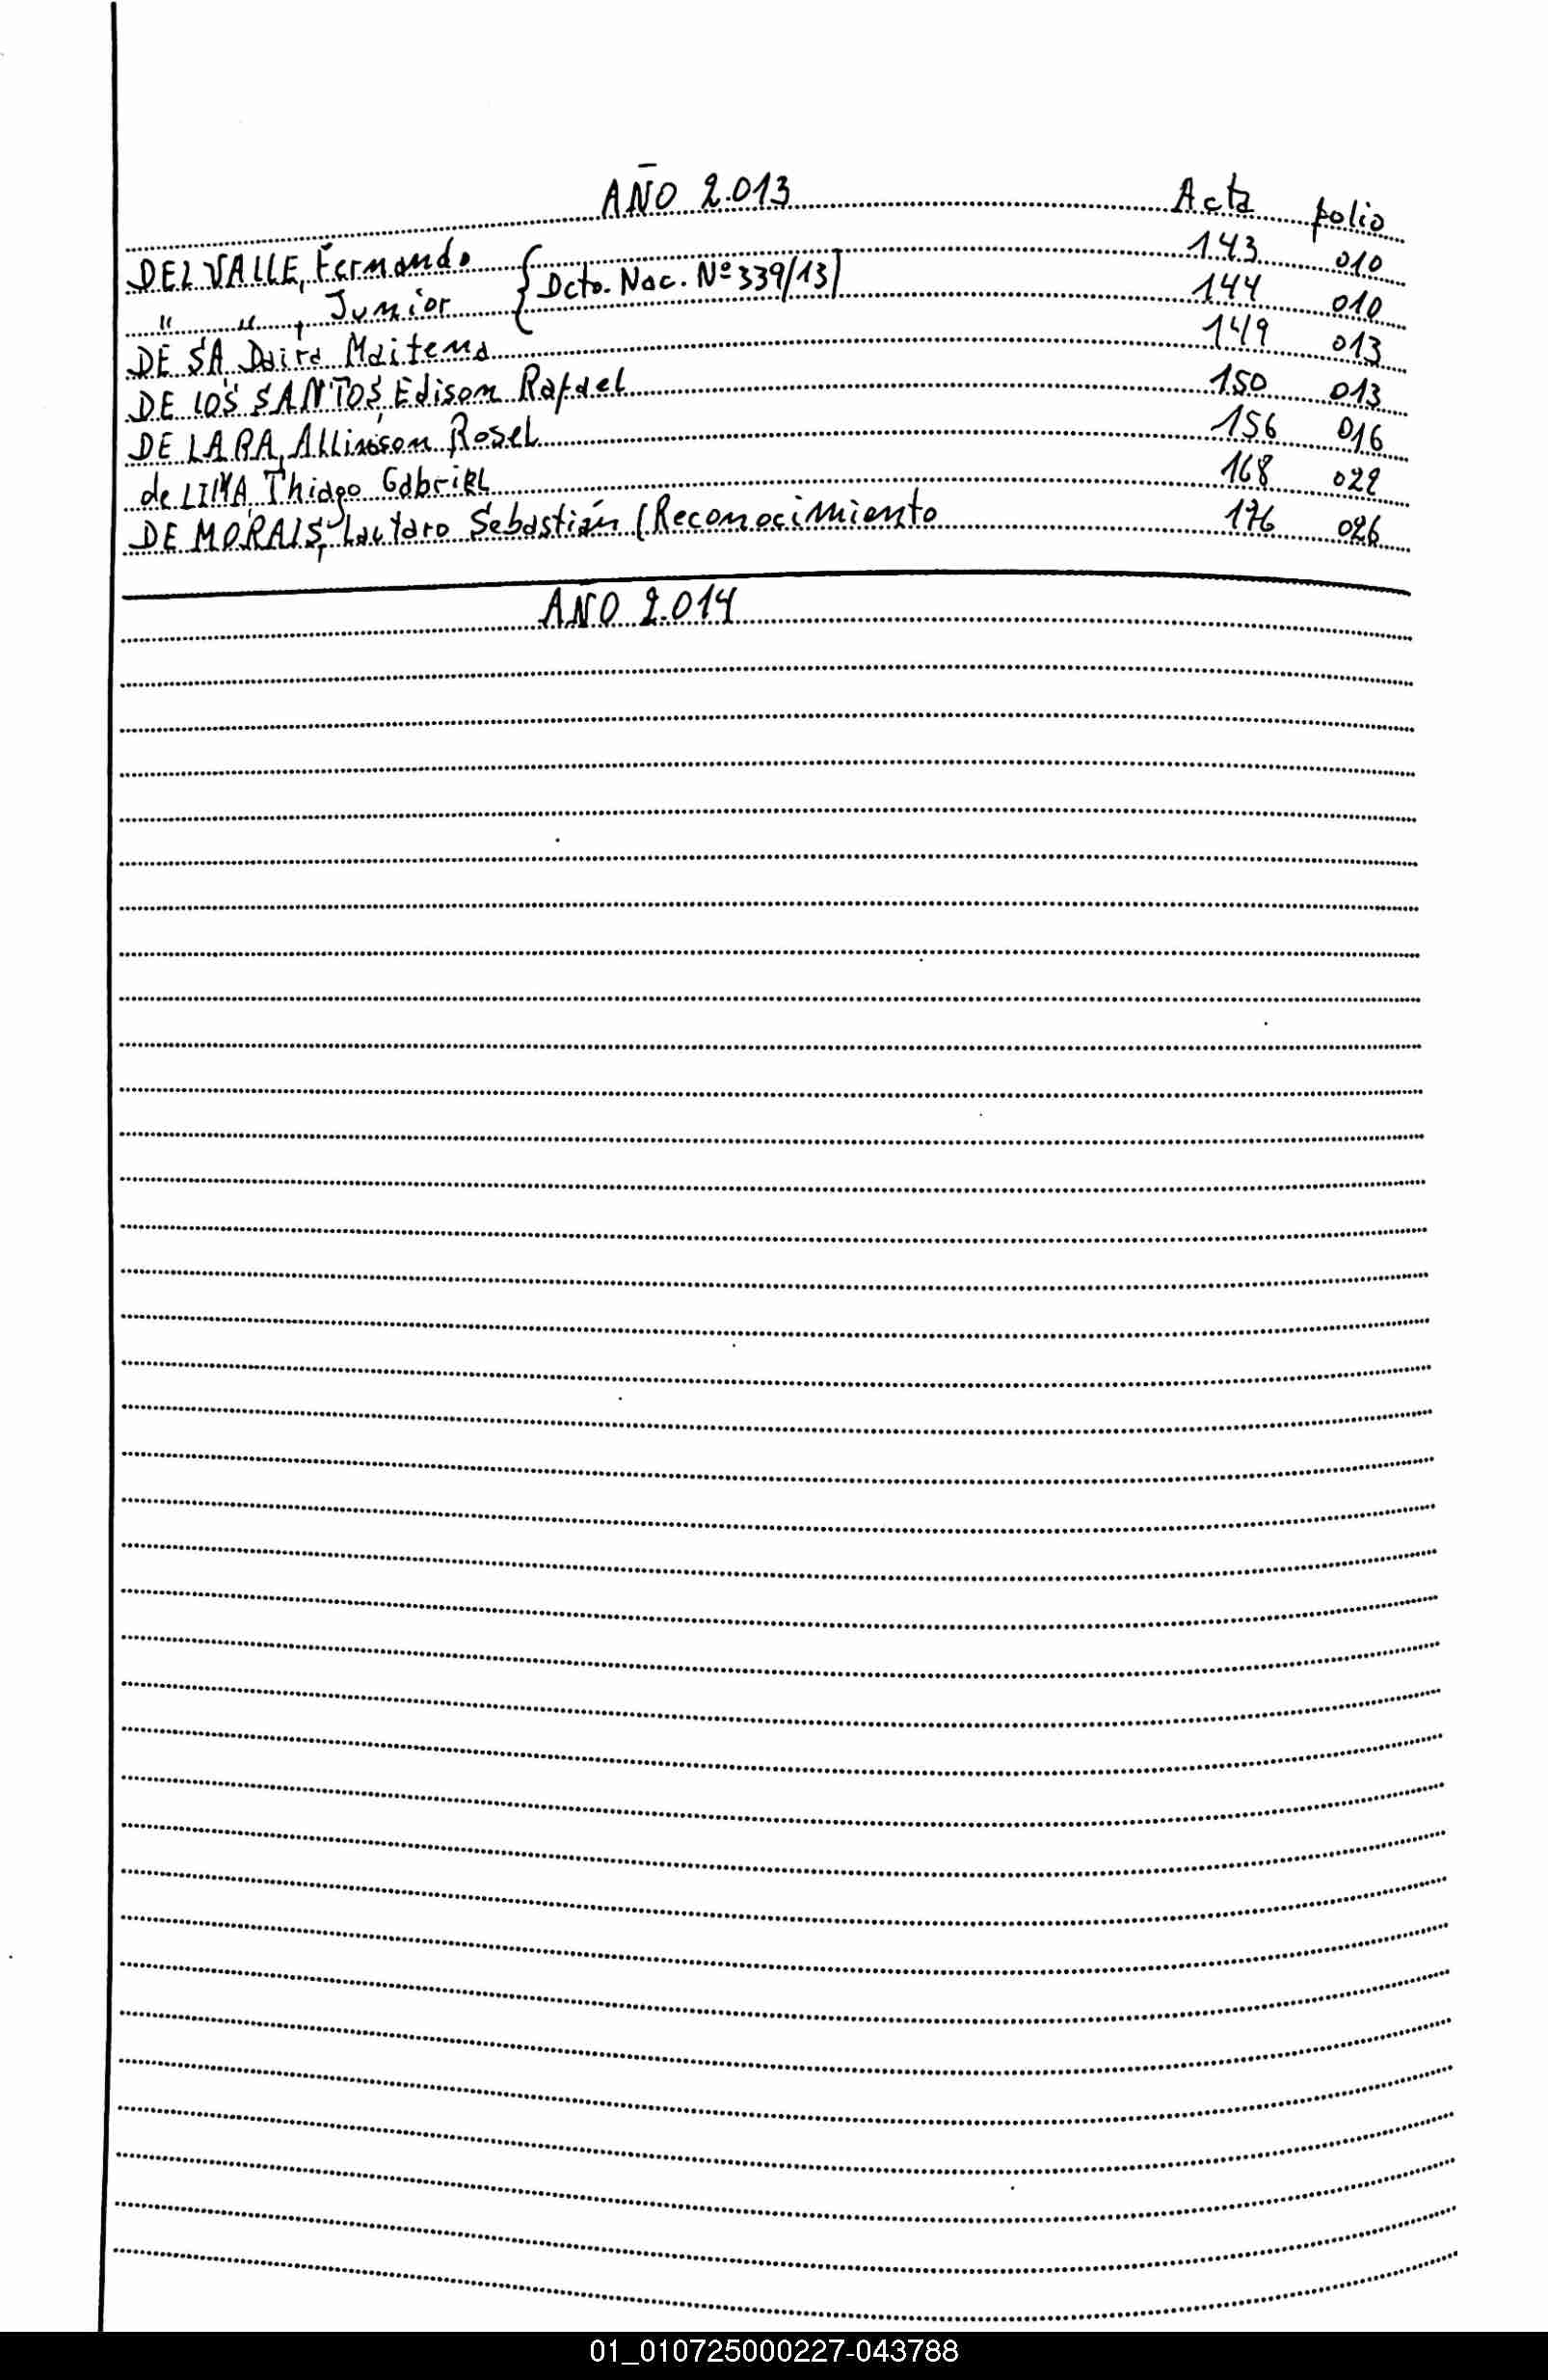 AÑO 2.013 Acta folio
DEL VALLE, Fernando { Dcto. Nac. Nº 339/13) 143 010
" " , Junior 144 010
DE SA, Daira Maitena 149 013
DE LOS SANTOS, Edison Rafael 150 013
DE LARA, Allinson Rosel 156 016
de LIMA, Thiago Gabriel 168 022
DE MORAIS, Lautaro Sebastián (Reconocimiento 176 026
AÑO 2.014
01_010725000227-043788